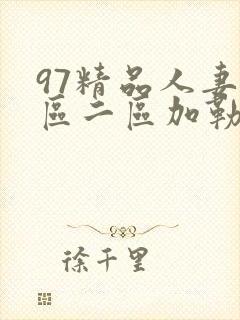 97精品人妻
區二區加勒
徐千里